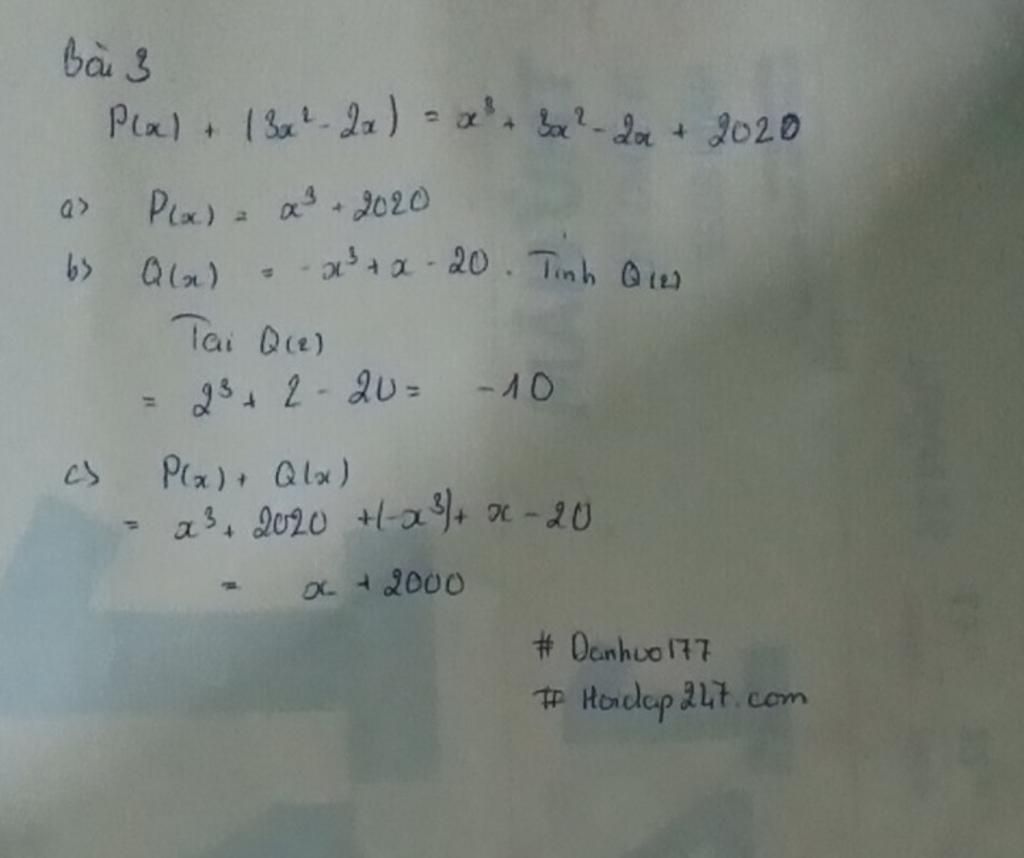 Bài 3
P(x) + (3x² - 2x) = x³ + 3x² - 2x + 2020
a> P(x) = x³ + 2020
b> Q(x) = -x³ + x - 20. Tính Q(2)
Tai Q(2)
= 2³ + 2 - 20 = -10
c> P(x) + Q(x)
= x³ + 2020 + (-x³) + x - 20
= x + 2000
# Danhvo177
# Hoidap247.com